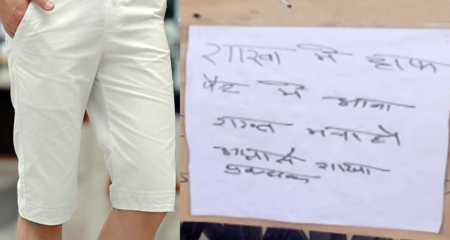 शाखा में हाफ
पैंट में आना
सख्त मना है
आज्ञा से शाखा
प्रबन्धक